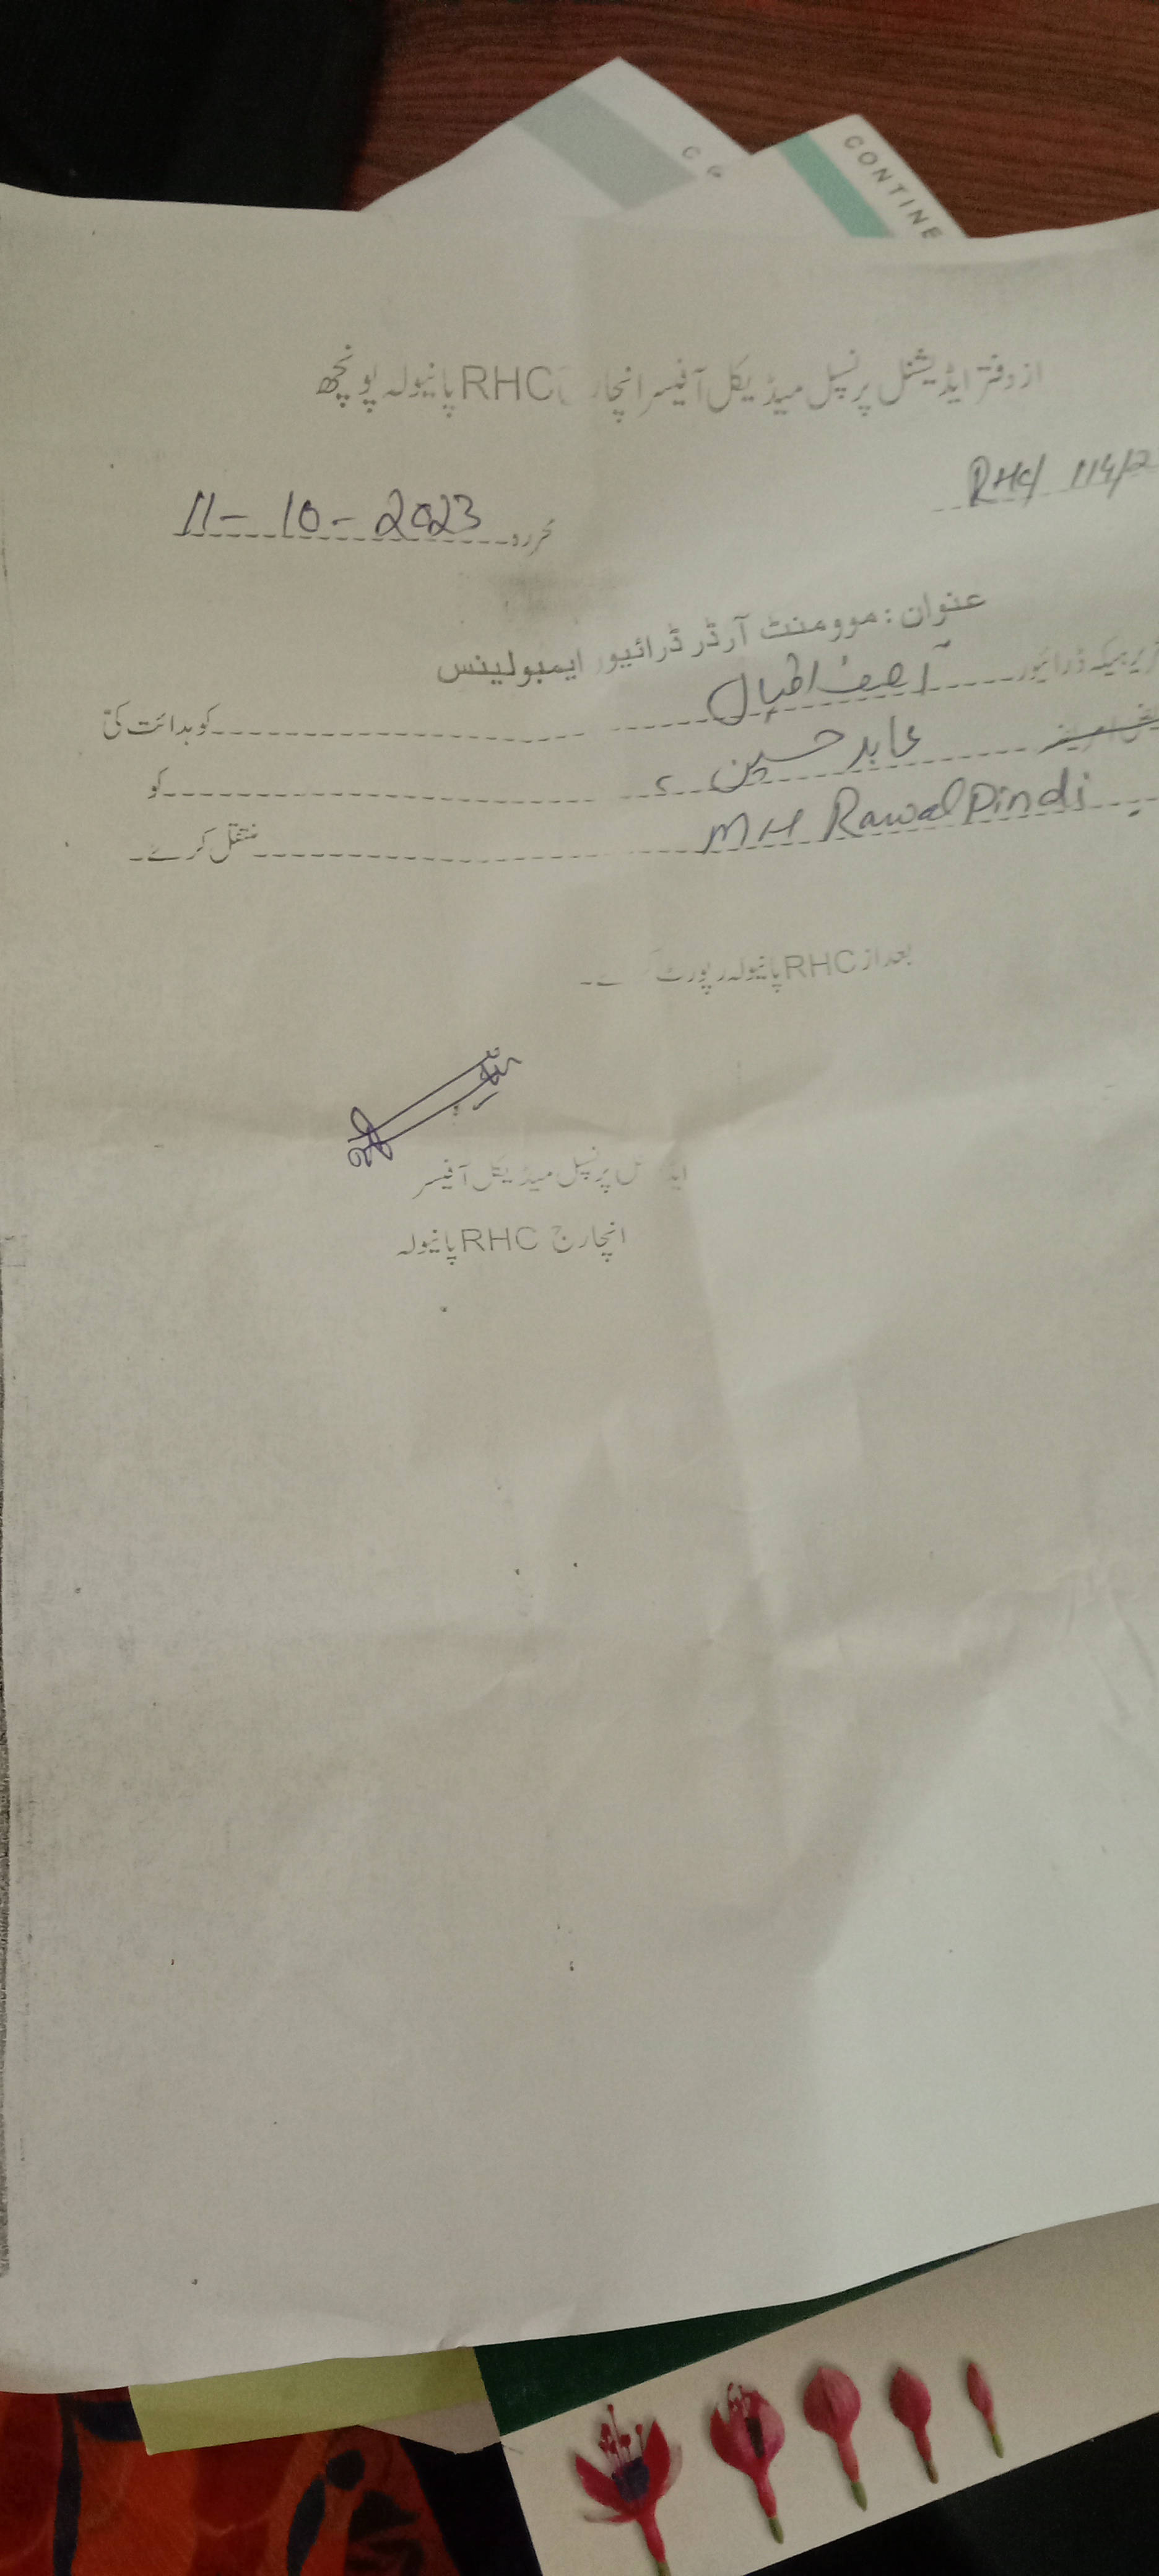 CONTINE
از دفتر ایڈیشنل پرنسپل میڈیکل آفیسر انچارج RHC پانیولہ پونچھ
RHC/ 114/2
محررہ 11-10-2023
عنوان : موومنٹ آرڈر ڈرائیور ایمبولینس
ڈرائیور آصف اقبال کو ہدائت کی
عابد حسین کو
MH RawalPindi منتقل کرے۔
بعد از RHC پانیولہ رپورٹ کرے۔
ایڈیشنل پرنسپل میڈیکل آفیسر
انچارج RHC پانیولہ